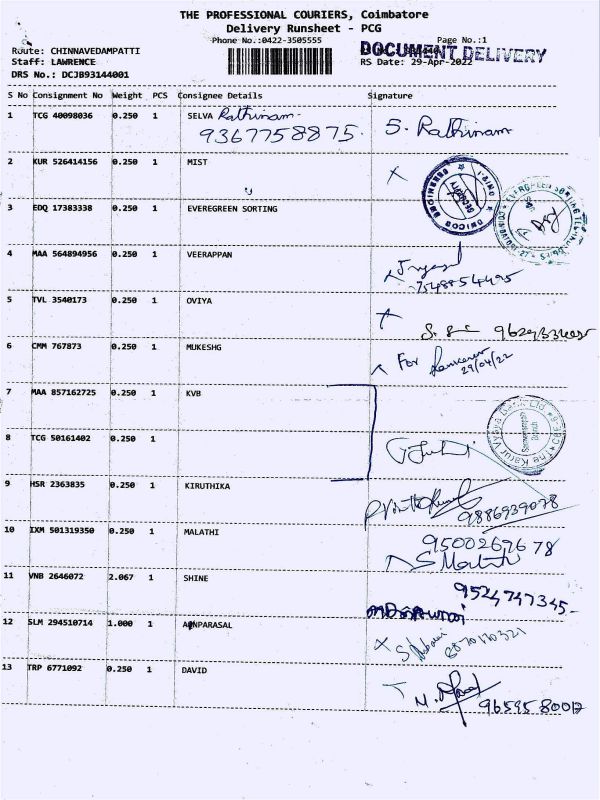 THE PROFESSIONAL COURIERS, Coimbatore
Delivery Runsheet - PCG
Phone No.:0422-3505555 Page No.:1
DOCUMENT DELIVERY
Route: CHINNAVEDAMPATTI
Staff: LAWRENCE RS Date: 29-Apr-2022
DRS No.: DCJB93144001
S No Consignment No Weight PCS Consignee Details Signature
1 TCG 40098036 0.250 1 SELVA Rathinam S. Rathinam
9367758875.
2 KUR 526414156 0.250 1 MIST
3 EDQ 17383338 0.250 1 EVEREGREEN SORTING
4 MAA 564894956 0.250 1 VEERAPPAN
7548854495
5 TVL 3540173 0.250 1 OVIYA
6 CMM 767873 0.250 1 MUKESHG For
29/04/22
7 MAA 857162725 0.250 1 KVB
8 TCG 50161402 0.250 1
9 HSR 2363835 0.250 1 KIRUTHIKA
9886939078
10 IXM 501319350 0.250 1 MALATHI 9500267678
S Malathi
11 VNB 2646072 2.067 1 SHINE 9524747345-
12 SLM 294510714 1.000 1
8870170321
13 TRP 6771092 0.250 1 DAVID